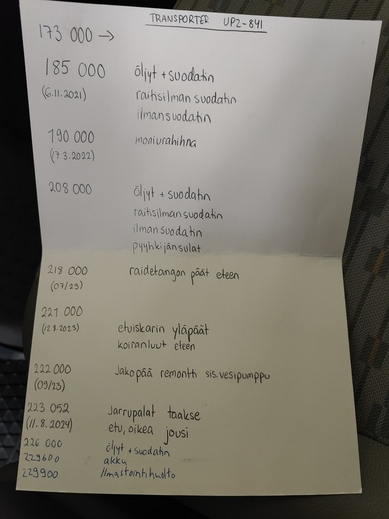 TRANSPORTER UPZ-841
173 000 →
185 000 öljyt + suodatin
(6.11.2021) raitisilman suodatin
ilmansuodatin
190 000 moniurahihna
(17.3.2022)
208 000 öljyt + suodatin
raitisilmansuodatin
ilman suodatin
pyyhkijänsulat
218 000 raidetangon päät eteen
(07/23)
221 000
(12.8.2023) etuiskarin yläpäät
koiranluut eteen
222 000 Jakopää remontti sis. vesipumppu
(09/23)
223 052 Jarrupalat taakse
(11.8.2024) etu, oikea jousi
226 000 öljyt + suodatin
229600 akku
229900 Ilmastointihuolto